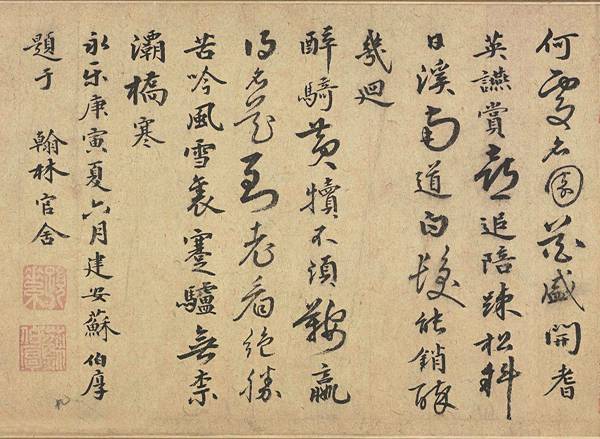 何處名園花盛開耆
英讌賞喜追陪疎松斜
日溪南道白髮能銷醉
幾迴
醉騎黃犢不須鞍贏
得名花到老看絕勝
苦吟風雪裏蹇驢無柰
灞橋寒
永樂庚寅夏六月建安蘇伯厚
題于翰林官舍